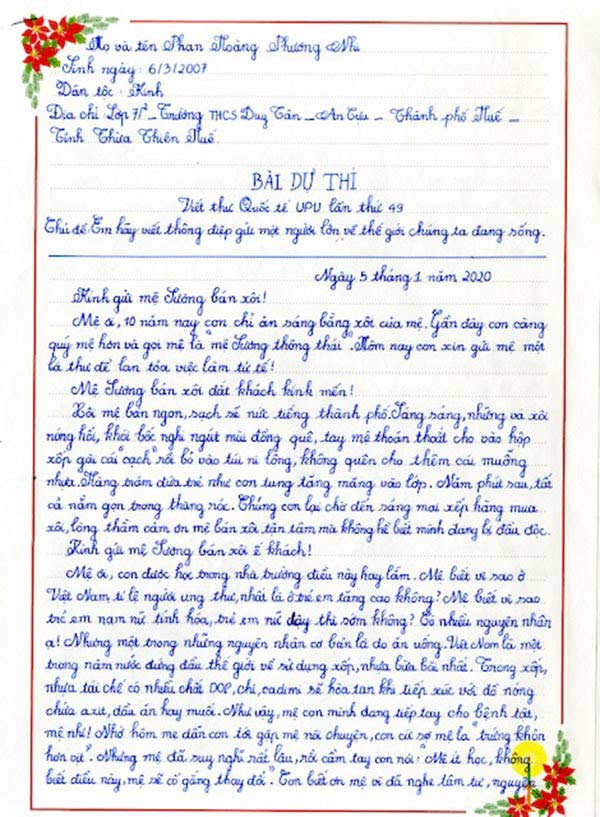 Họ và tên Phan Hoàng Phương Nhi
Sinh ngày: 6/3/2007
Dân tộc: Kinh
Địa chỉ Lớp 7/ _ Trường THCS Duy Tân _ An Cựu _ Thành phố Huế _
Tỉnh Thừa Thiên Huế.
BÀI DỰ THI
Viết thư Quốc tế UPU lần thứ 49
Chủ đề: Em hãy viết thông điệp gửi một người lớn về thế giới chúng ta đang sống.
Ngày 5 tháng 1 năm 2020
Kính gửi mệ Sương bán xôi!
Mệ ơi, 10 năm nay con chỉ ăn sáng bằng xôi của mệ. Gần đây con càng
quý mệ hơn và gọi mệ là "mệ Sương thông thái". Hôm nay con xin gửi mệ một
lá thư để lan tỏa việc làm tử tế!
Mệ Sương bán xôi đắt khách kính mến!
Xôi mệ bán ngon, sạch sẽ nức tiếng thành phố. Sáng sáng, những vá xôi
nóng hổi, khói bốc nghi ngút mùi đồng quê, tay mệ thoăn thoắt cho vào hộp
xốp gài cái "cạch" rồi bỏ vào túi ni lông, không quên cho thêm cái muỗng
nhựa. Hàng trăm đứa trẻ như con tung tăng mang vào lớp. Năm phút sau, tất
cả nằm gọn trong thùng rác. Chúng con lại chờ đến sáng mai xếp hàng mua
xôi, lòng thầm cảm ơn mệ bán xôi tận tâm mà không hề biết mình đang bị đầu độc.
Kính gửi mệ Sương bán xôi ế khách!
Mệ ơi, con được học trong nhà trường điều này hay lắm. Mệ biết vì sao ở
Việt Nam, tỉ lệ người ung thư, nhất là ở trẻ em tăng cao không? Mệ biết vì sao
trẻ em nam nữ tính hóa, trẻ em nữ dậy thì sớm không? Có nhiều nguyên nhân
ạ! Nhưng một trong những nguyên nhân cơ bản là do ăn uống. Việt Nam là một
trong năm nước đứng đầu thế giới về sử dụng xốp, nhựa bừa bãi nhất. Trong xốp,
nhựa tái chế có nhiều chất DOP, chì, cadimi sẽ hòa tan khi tiếp xúc với đồ nóng
chứa axit, dầu ăn hay muối. Như vậy, mệ con mình đang tiếp tay cho bệnh tật,
mệ nhỉ! Nhớ hôm mẹ dẫn con tới gặp mệ nói chuyện, con cứ sợ mệ la "trứng khôn
hơn vịt". Nhưng mệ đã suy nghĩ rất lâu, rồi cầm tay con nói: "Mệ ít học, không
biết điều này, mệ sẽ cố gắng thay đổi". Con biết ơn mệ vì đã nghe tâm tư, nguyện